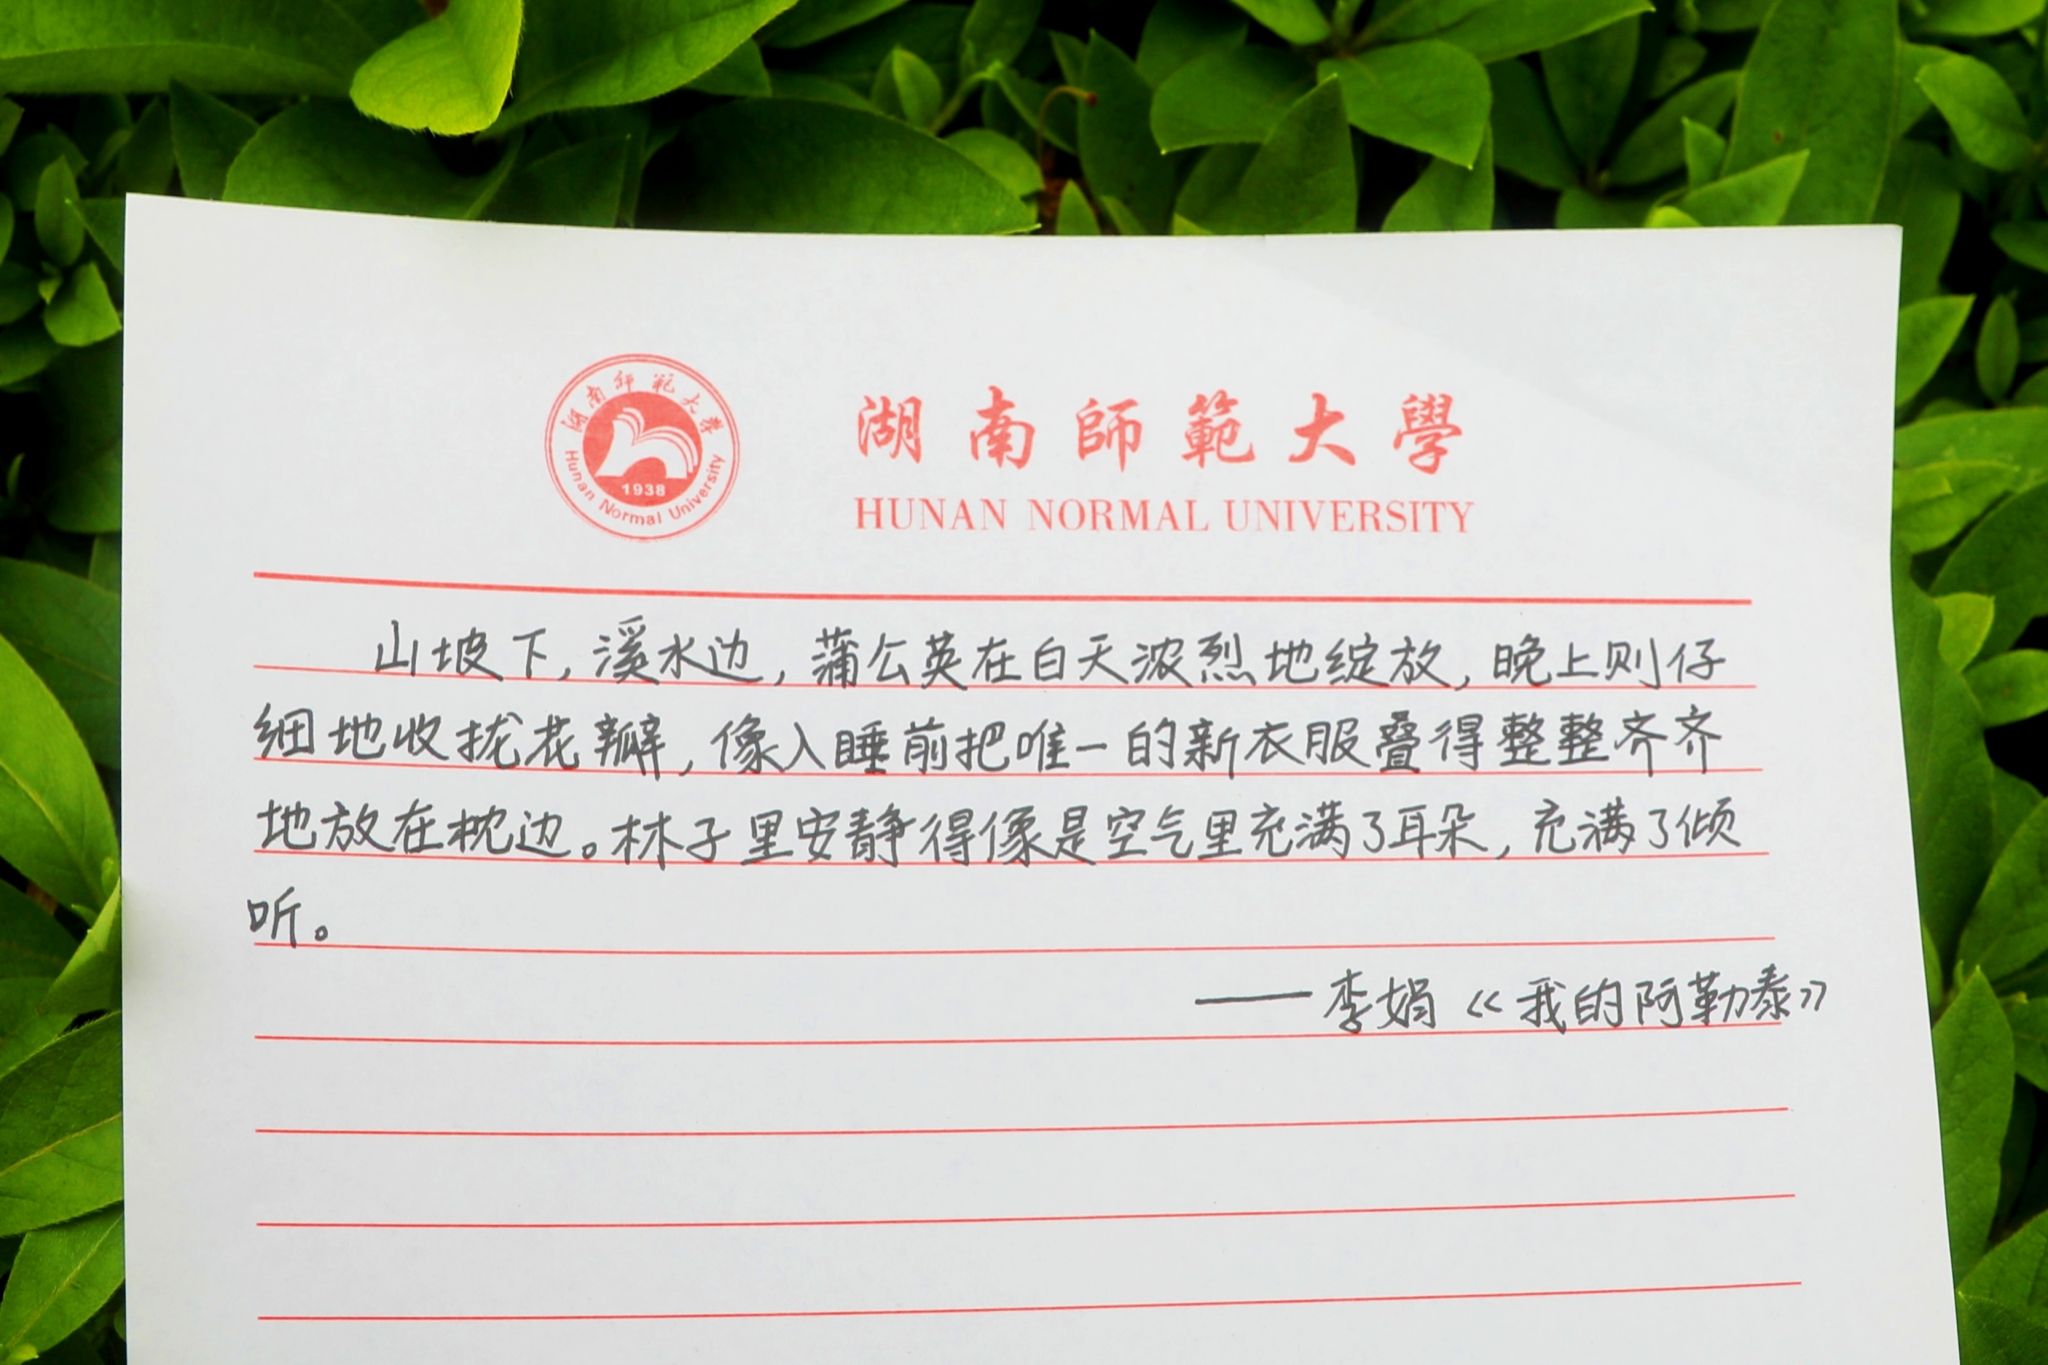 湖南师范大学
1938
Hunan Normal University
湖南師範大學
HUNAN NORMAL UNIVERSITY
山坡下，溪水边，蒲公英在白天浓烈地绽放，晚上则仔
细地收拢花瓣，像入睡前把唯一的新衣服叠得整整齐齐
地放在枕边。林子里安静得像是空气里充满了耳朵，充满了倾
听。
——李娟《我的阿勒泰》